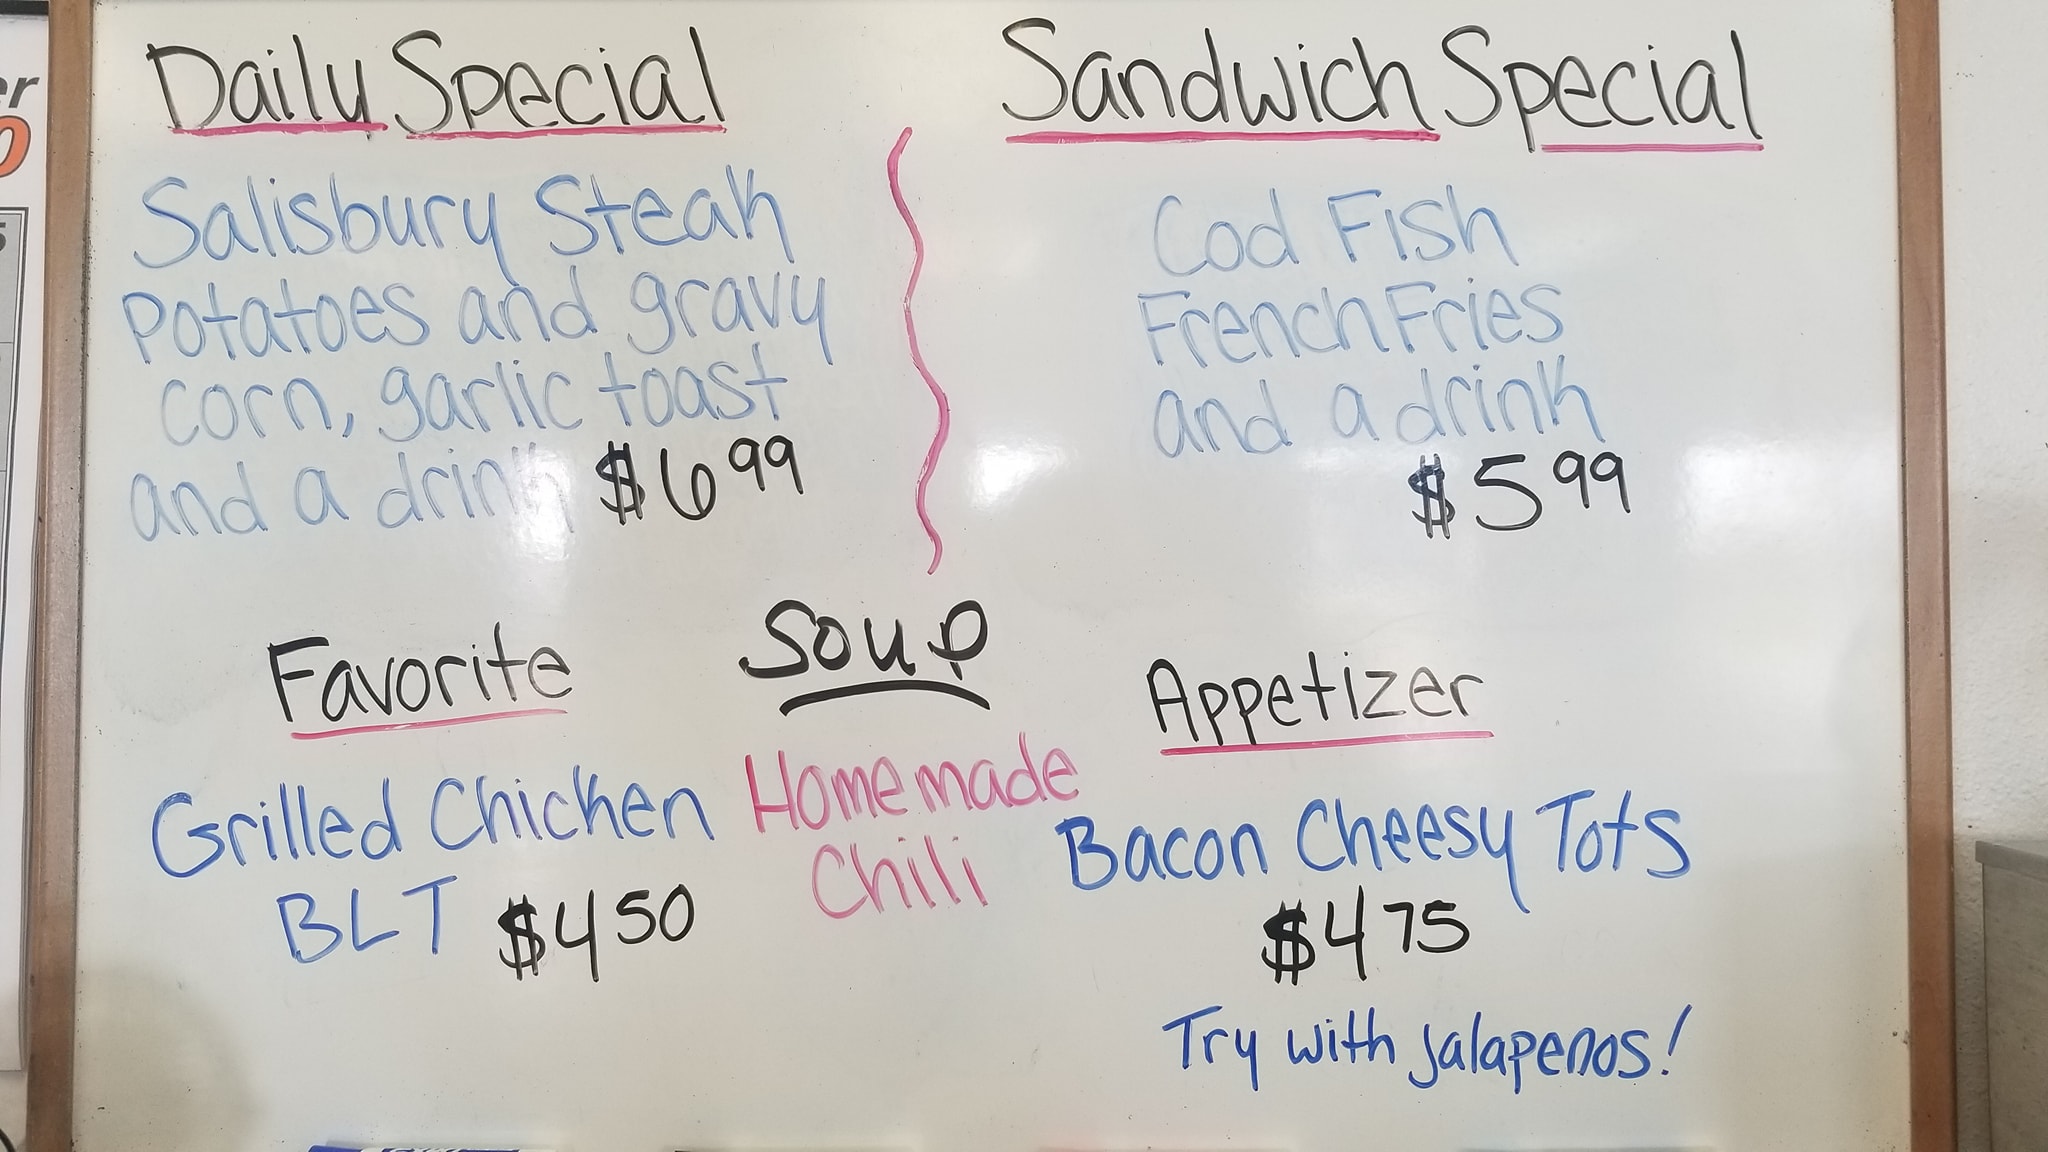 Daily Special
Salisbury Steak
Potatoes and gravy
corn, garlic toast
and a drink $6.99
Sandwich Special
Cod Fish
French Fries
and a drink
$5.99
Favorite
Grilled Chicken
BLT $4.50
Soup
Homemade
Chili
Appetizer
Bacon Cheesy Tots
$4.75
Try with jalapenos!
er
0
5